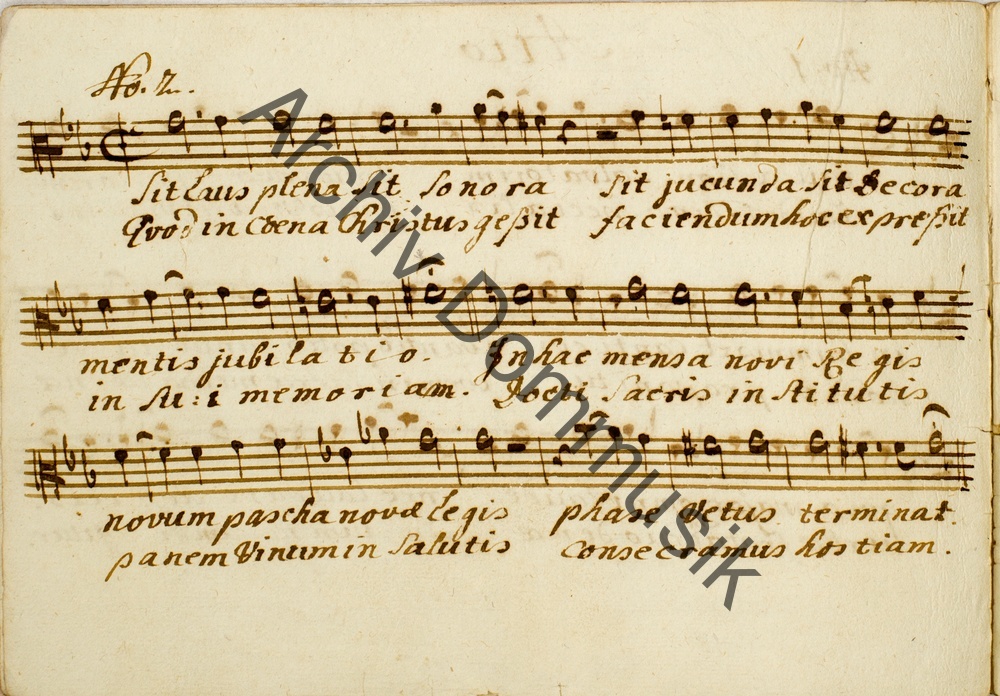 No. 2.
Sit Laus plena sit sonora sit jucunda sit Decora
Qvod in Coena Christus geßit faciendum hoc expreßit
mentis jubilatio. In hac mensa novi Regis
in su:i memoriam. Docti Sacris institutis
novum pascha novæ legis phase Vetus terminat.
panem Vinum in Salutis consecramus hostiam.
Archiv Dommusik